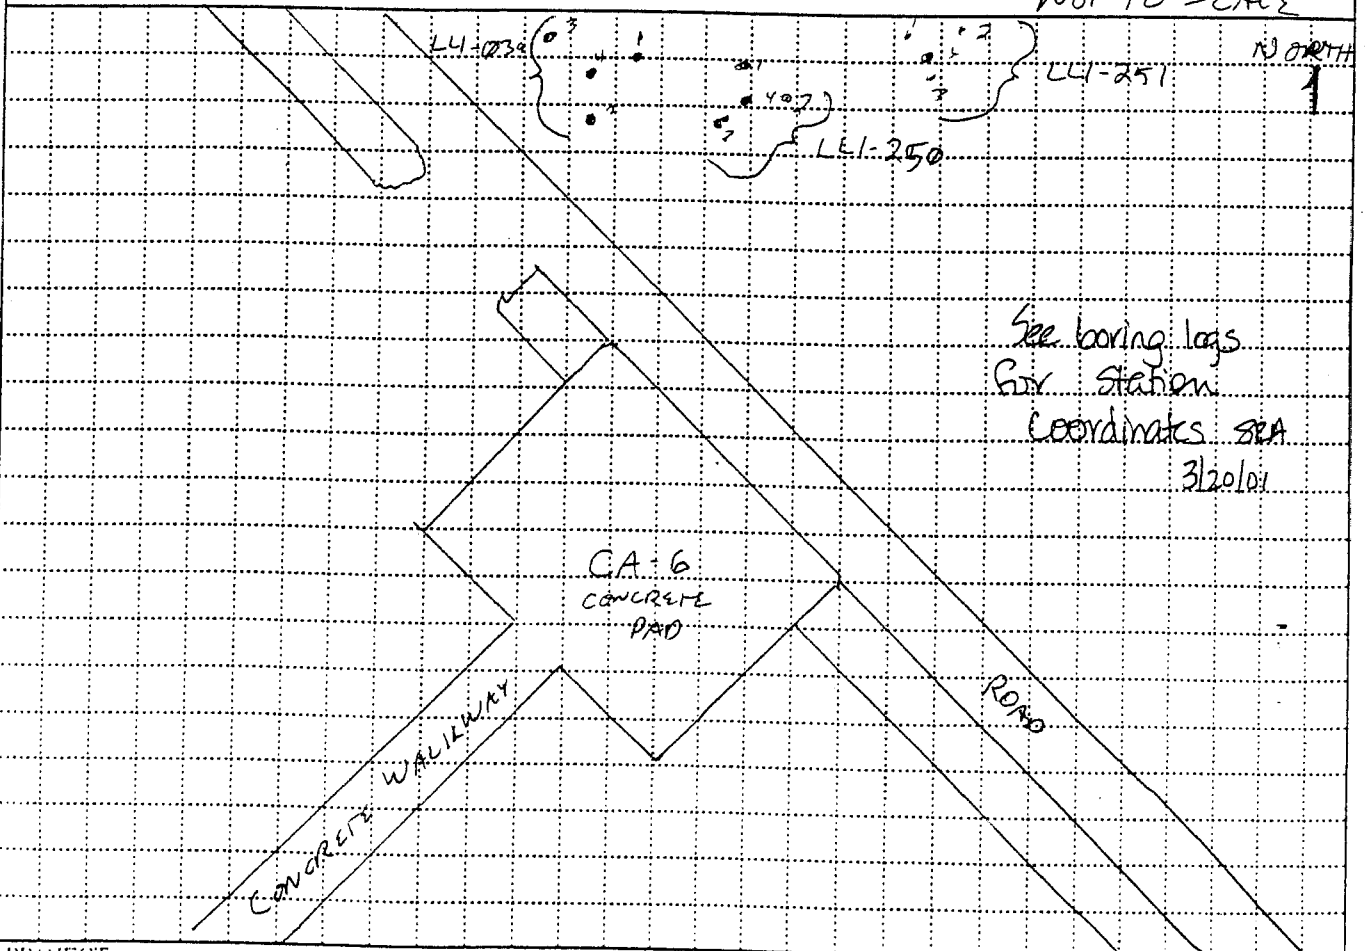 NOT TO SCALE
NORTH
3
1
4
2
1
2
3
LL1-251
4
2
LL1-250
See boring logs
for station
Coordinates SRA
3/20/01
CA-6
CONCRETE
PAD
ROAD
CONCRETE WALKWAY